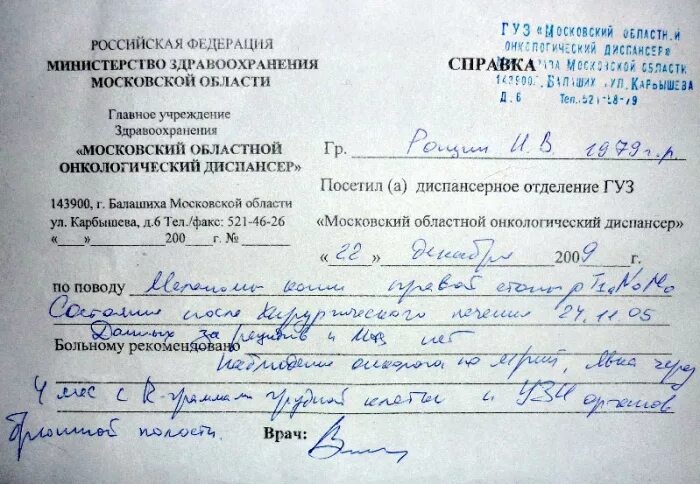 РОССИЙСКАЯ ФЕДЕРАЦИЯ
МИНИСТЕРСТВО ЗДРАВООХРАНЕНИЯ
МОСКОВСКОЙ ОБЛАСТИ
Главное учреждение
Здравоохранения
«МОСКОВСКИЙ ОБЛАСТНОЙ
ОНКОЛОГИЧЕСКИЙ ДИСПАНСЕР»
143900, г. Балашиха Московской области
ул. Карбышева, д.6 Тел./факс: 521-46-26
«___»__________200__г. №____
СПРАВКА
ГУЗ «МОСКОВСКИЙ ОБЛАСТНОЙ
ОНКОЛОГИЧЕСКИЙ ДИСПАНСЕР»
МОСКОВСКОЙ ОБЛАСТИ
143900, Г. БАЛАШИХ УЛ. КАРБЫШЕВА
Д.6 Тел.
Гр. Рощин И. В. 1979 г.р.
Посетил (а) диспансерное отделение ГУЗ
«Московский областной онкологический диспансер»
«22» декабря 2009 г.
по поводу Меланомы кожи правой стопы
Состояние после хирургического лечения 24.11.05
Данных за рецидив и нет
Больному рекомендовано
наблюдение онколога по явка через
4 мес с R-граммами грудной клетки и УЗИ органов
брюшной полости.
Врач: